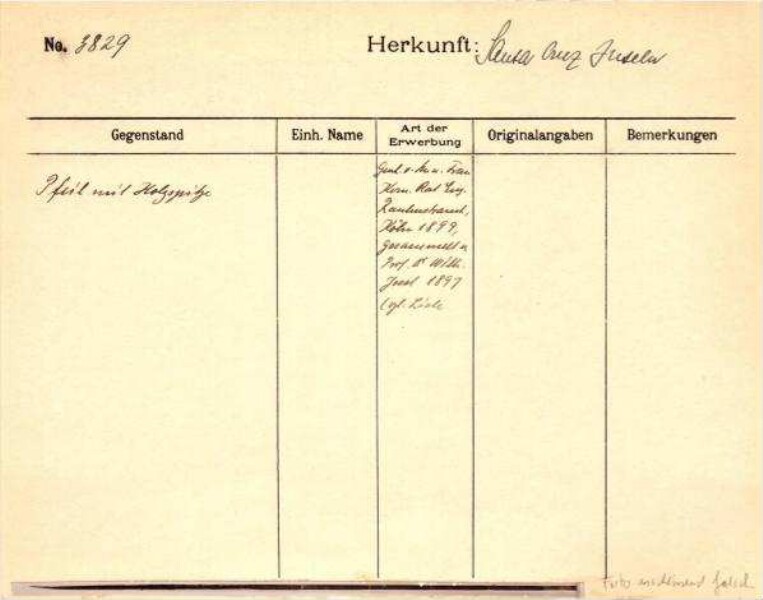 No. 3829
Herkunft: Santa Cruz Inseln
Gegenstand
Einh. Name
Art der
Erwerbung
Originalangaben
Bemerkungen
Pfeil mit Holzspitze
Gesch. v. Frau
Kom. Rat Eug.
Rautenstrauch,
Köln 1899,
gesammelt v.
Prof. Dr Wilh.
Joest 1897
vgl. Liste
Foto falsch